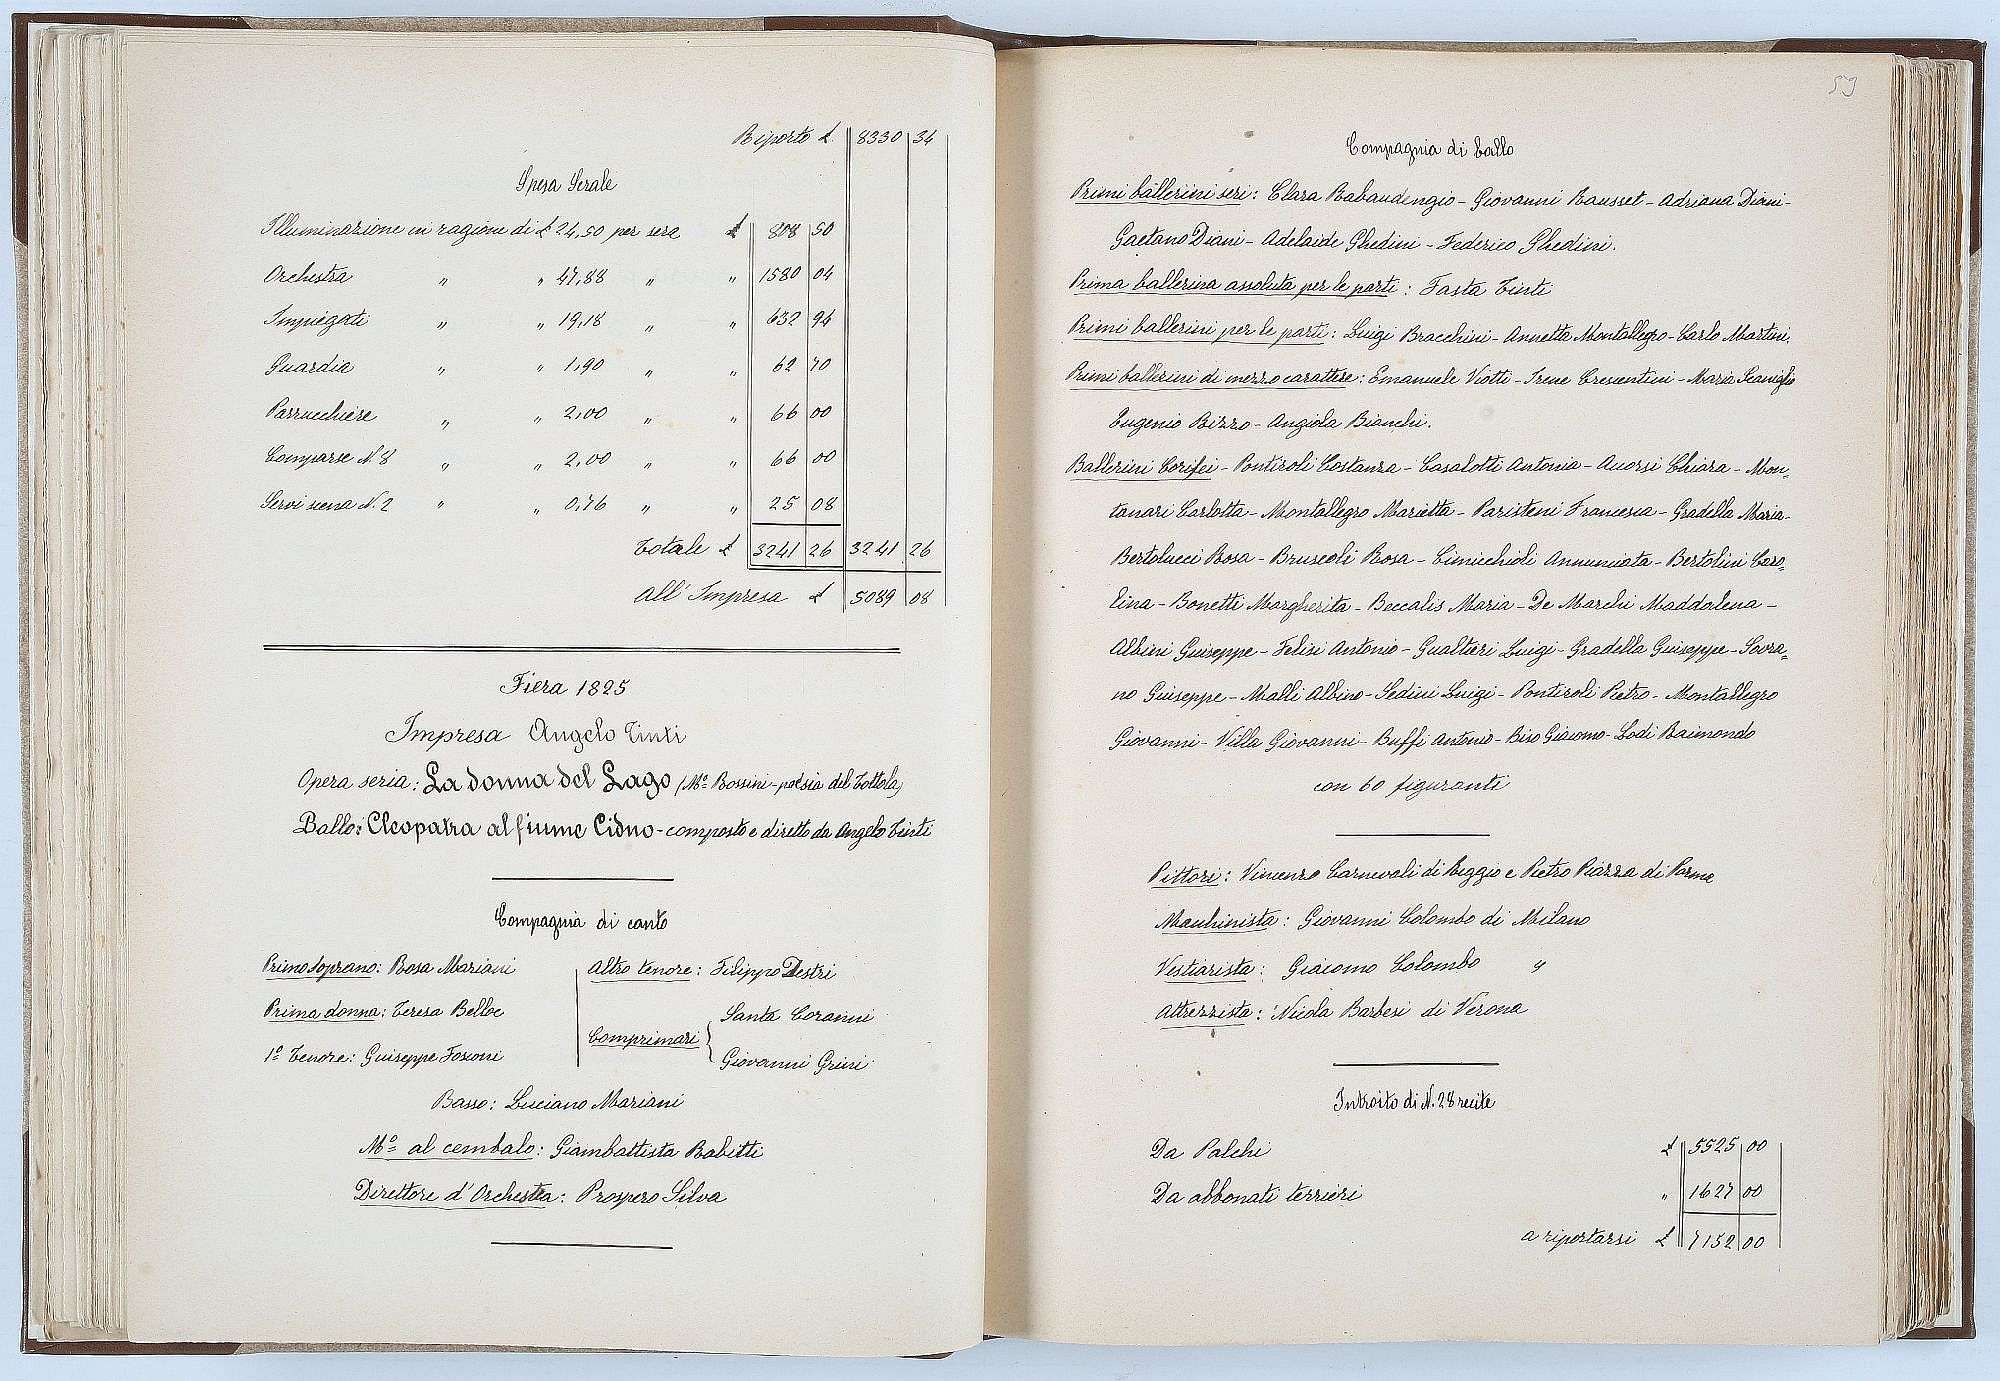 Riporto £ 8330 34
Spesa Serale
Illuminazione in ragione di £ 24,50 per sera £ 808 50
Orchestra " " 47,88 " " 1580 04
Impiegati " " 19,18 " " 632 94
Guardia " " 1,90 " " 62 70
Parrucchiere " " 2,00 " " 66 00
Comparse N. 8 " " 2,00 " " 66 00
Servi scena N. 2 " " 0,76 " " 25 08
Totale £ 3241 26 3241 26
All' Impresa £ 5089 08
Fiera 1825
Impresa Angelo Tinti
Opera seria: La donna del Lago (Mo. Rossini - poesia del Tottola)
Ballo: Cleopatra al fiume Cidno - composto e diretto da Angelo Tinti
Compagnia di canto
Primo Soprano: Rosa Mariani
Prima donna: Teresa Belloc
1o Tenore: Guiseppe Fosconi
Altro tenore: Filippo Destri
Comprimari { Santa Coranni
Giovanni Grini
Basso: Luciano Mariani
Mo. al cembalo: Giambattista Rabitti
Direttore d' Orchestra: Prospero Silva
59
Compagnia di ballo
Primi ballerini seri: Clara Rabaudengio - Giovanni Rausset - Adriana Diani -
Gaetano Diani - Adelaide Ghedini - Federico Ghedini.
Prima ballerina assoluta per le parti: Fasta Tinti
Primi ballerini per le parti: Luigi Bracchini - Annetta Montallegro - Carlo Martini.
Primi ballerini di mezzo carattere: Emanuele Viotti - Irene Crescentini - Maria Scaniglio
Eugenio Rizzo - Angiola Bianchi.
Ballerini Corifei - Pontiroli Costanza - Casalotti Antonia - Avorsi Chiara - Mon=
tanari Carlotta - Montallegro Marietta - Paristeni Francesca - Gradella Maria -
Bertolucci Rosa - Bruscoli Rosa - Cimicchioli Annunciata - Bertolini Caro=
lina - Bonetti Margherita - Beccalis Maria - De Marchi Maddalena -
Albini Guiseppe - Felisi Antonio - Gualtieri Luigi - Gradella Guiseppe - Sovra=
no Guiseppe - Malli Albino - Sedini Luigi - Pontiroli Pietro - Montallegro
Giovanni - Villa Giovanni - Buffi Antonio - Biso Giacomo - Lodi Raimondo
con 60 figuranti
Pittori: Vincenzo Carnevali di Reggio e Pietro Piazza di Parma
Macchinista: Giovanni Colombo di Milano
Vestiarista: Giacomo Colombo "
Attrezzista: Nicola Barbesi di Verona
Introito di N. 28 recite
Da Palchi £ 5525 00
Da abbonati terrieri " 1627 00
a riportarsi £ 7152 00